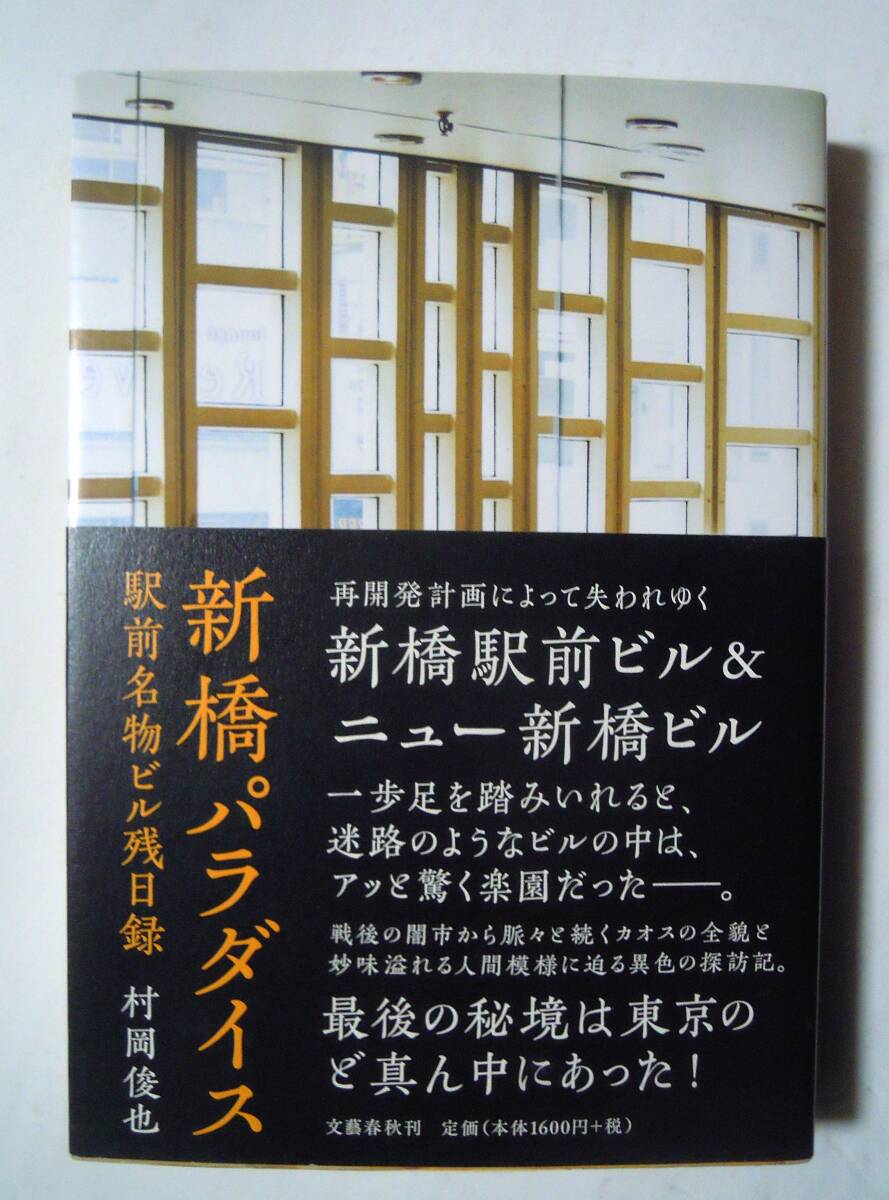 新橋パラダイス
駅前名物ビル残日録 村岡俊也
再開発計画によって失われゆく
新橋駅前ビル&
ニュー新橋ビル
一歩足を踏みいれると、
迷路のようなビルの中は、
アッと驚く楽園だった——。
戦後の闇市から脈々と続くカオスの全貌と
妙味溢れる人間模様に迫る異色の探訪記。
最後の秘境は東京の
ど真ん中にあった!
文藝春秋刊 定価(本体1600円+税)